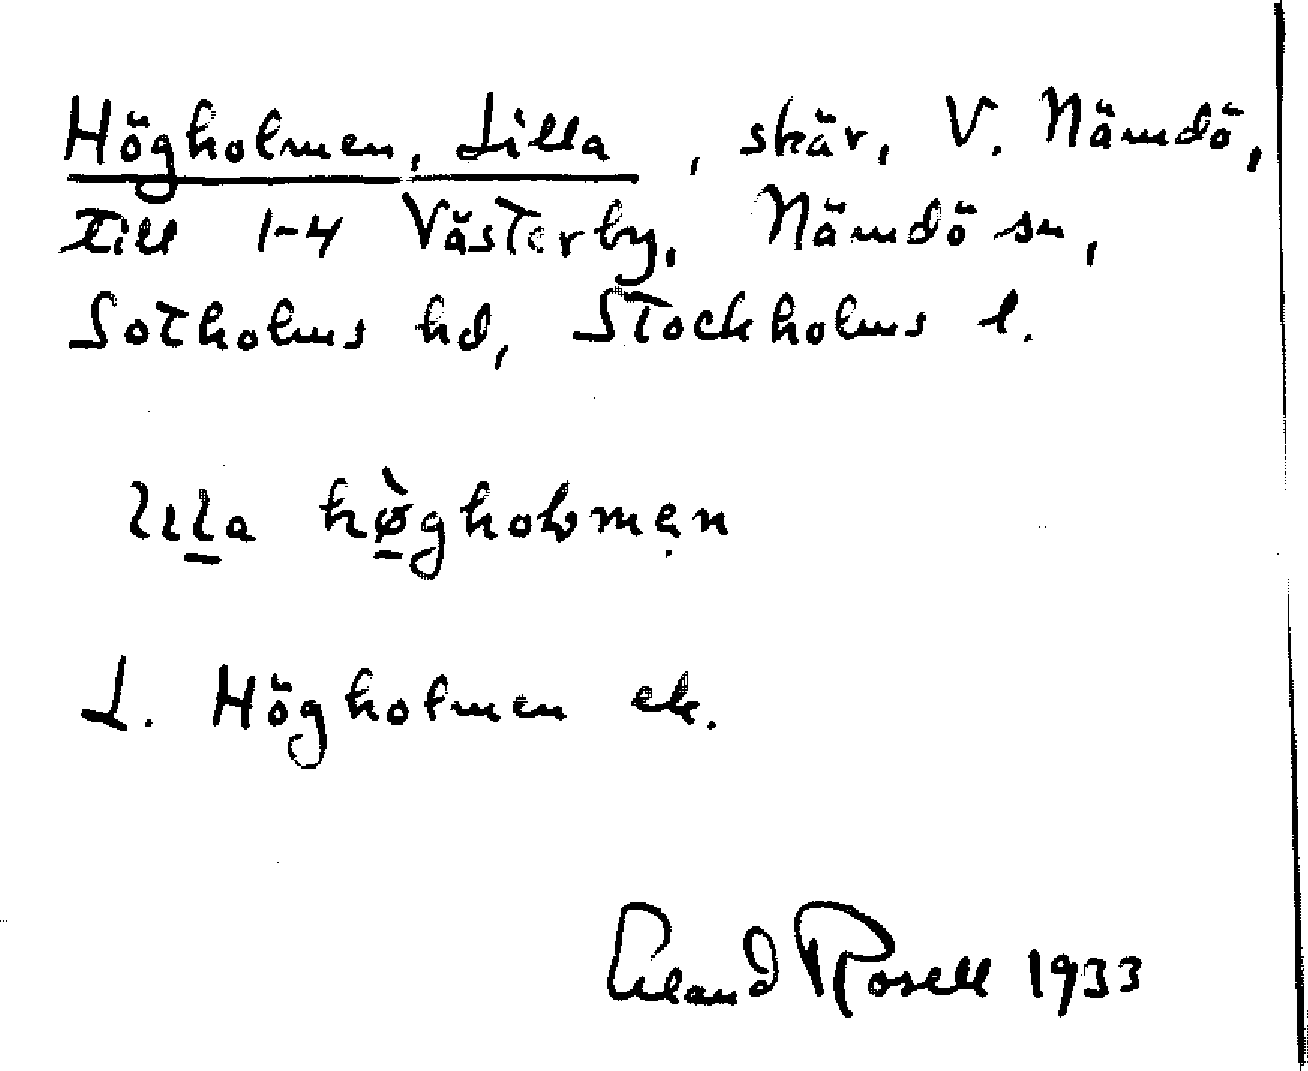 Högholmen, Lilla, skär, V. Nämdö,
till 1-4 Västerby, Nämdö sn,
Sotholms hd, Stockholms l.
lɩl̲a hø̲̀gholmẹn
L. Högholmen ek.
Erland Rosell 1933